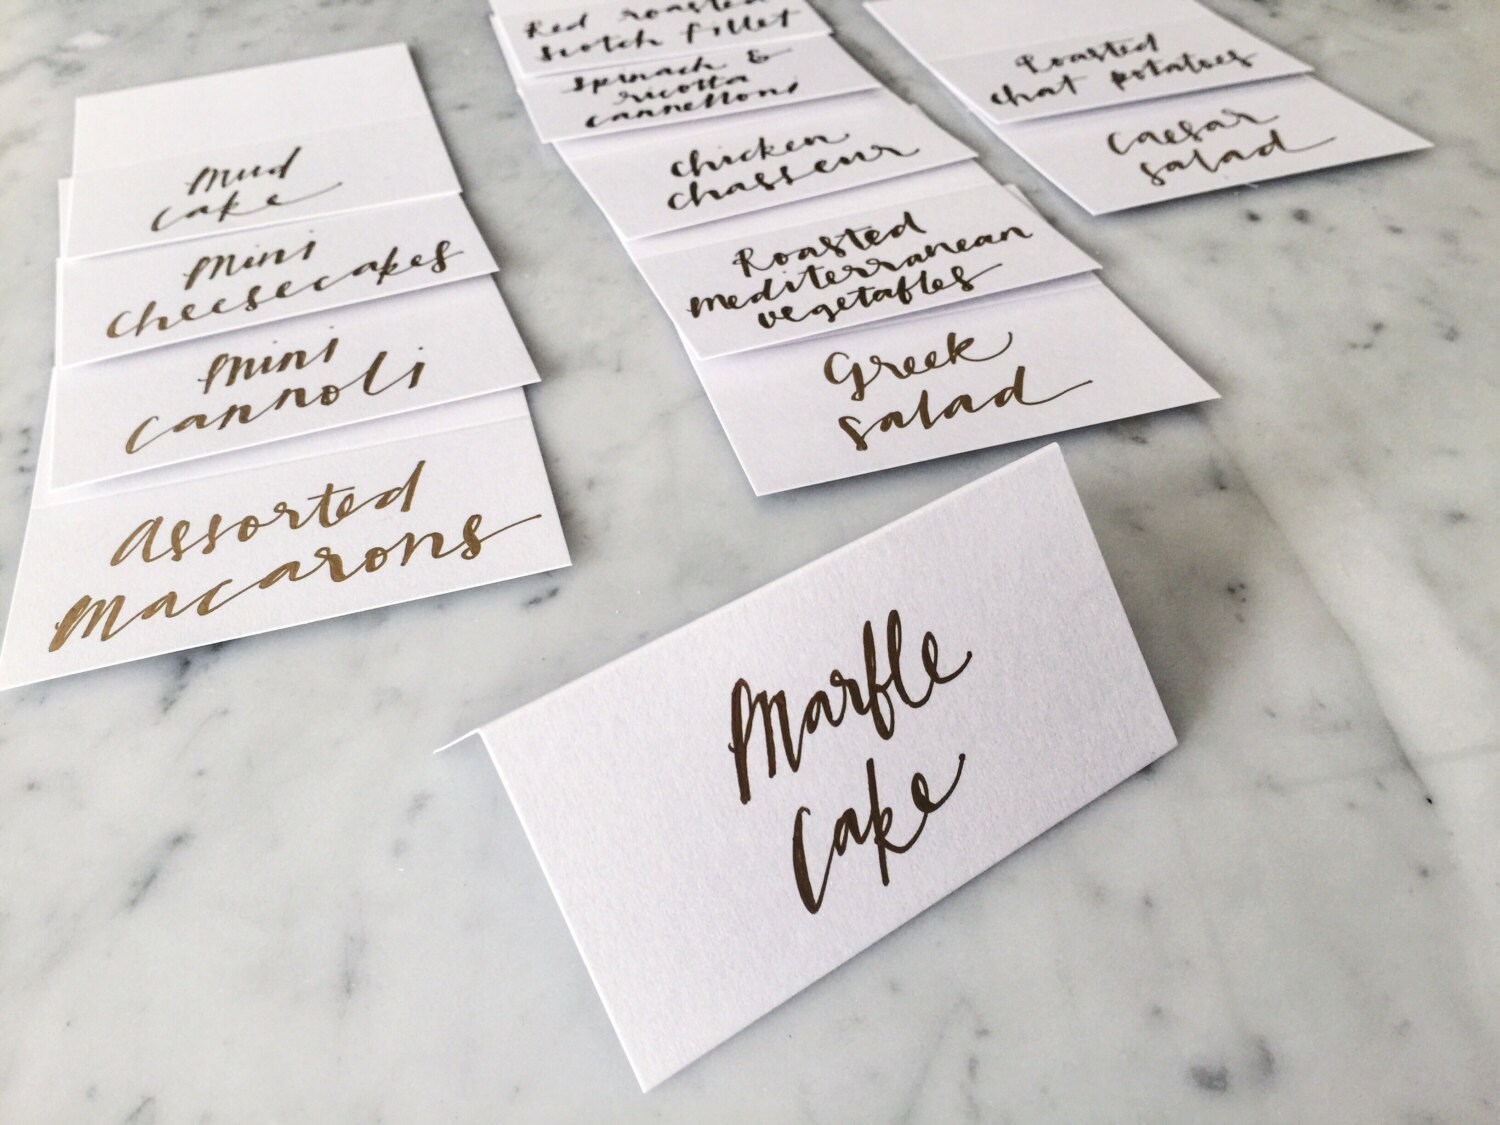 Mud
cake
Mini
cheesecakes
Mini
cannoli
Assorted
Macarons
Red roasted
scotch fillet
Spinach &
ricotta
cannelloni
Chicken
chasseur
Roasted
mediterranean
vegetables
Greek
salad
Roasted
chat potatoes
Caesar
salad
Marble
Cake